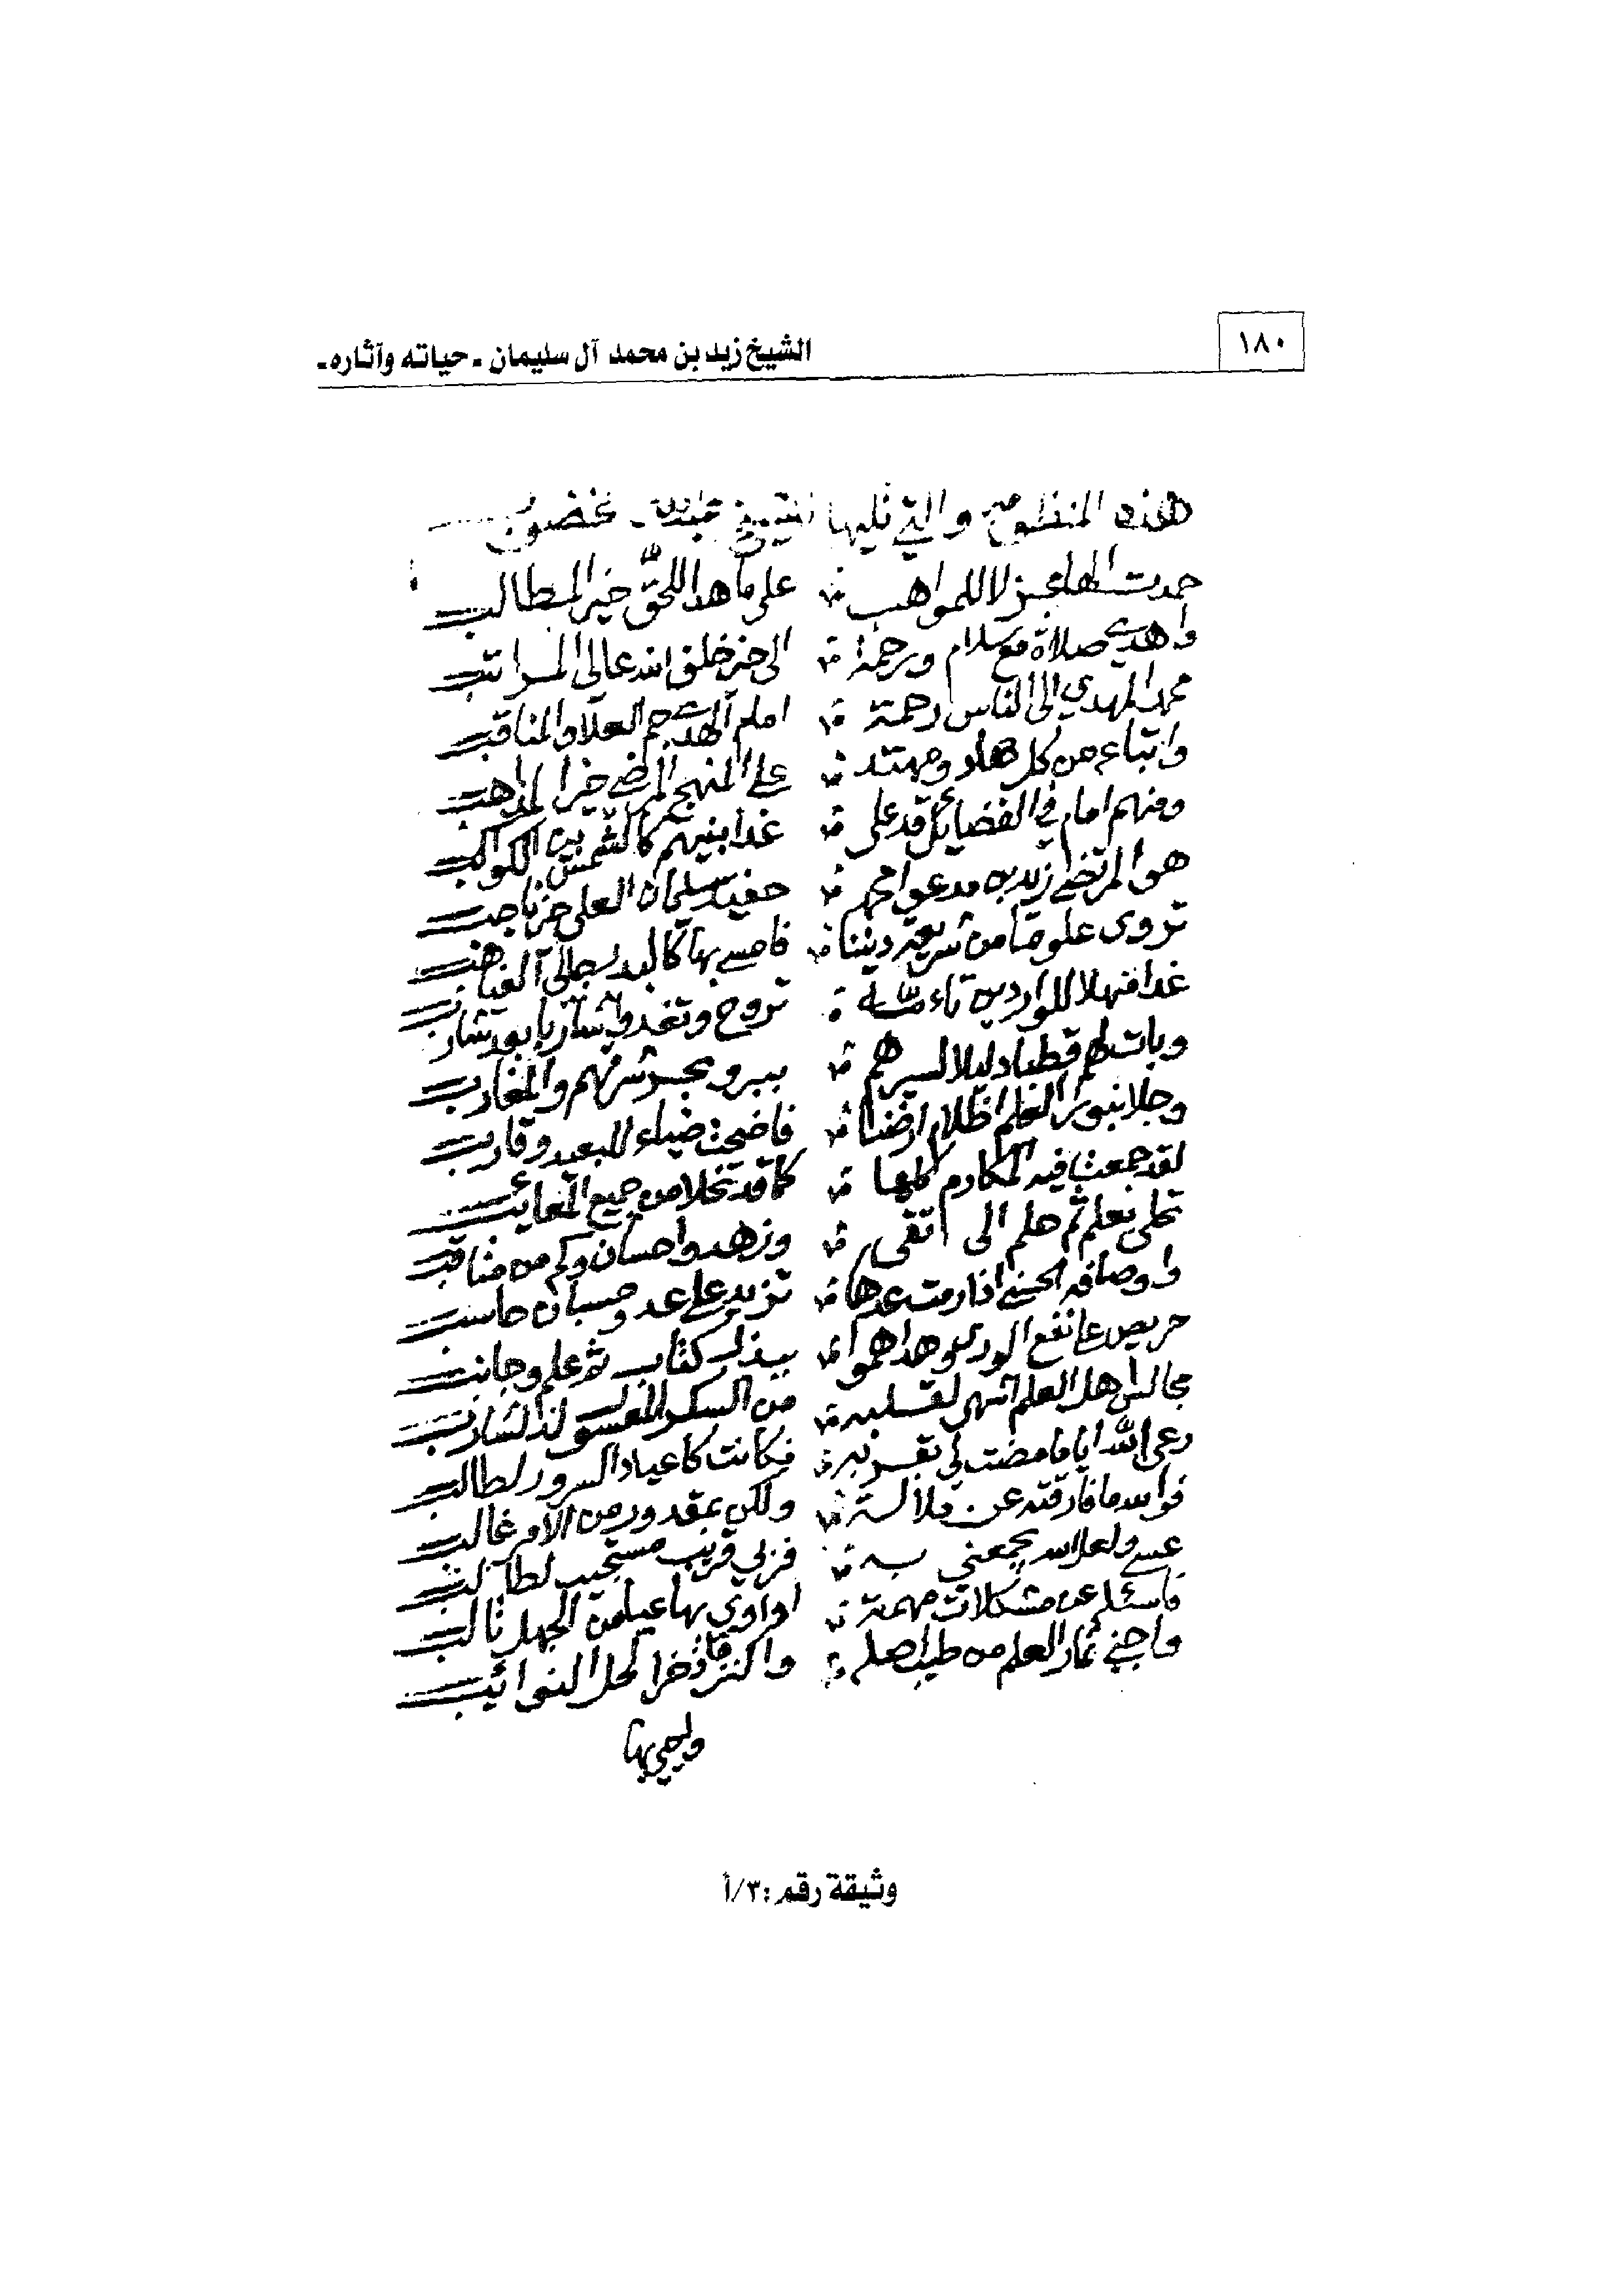 ١٨٠
الشيخ زيد بن محمد آل سليمان - حياته وآثاره-
هذه المنظومة والتي تليها للشيخ غضون
حمدت الها مجزلا للمواهب على ما هدا للحق خير المطالب
واهدي صلاة مع سلام ورحمة الى خير خلق الله عالي المراتب
محمد المهدي الى الناس رحمة امام الهدى جم العلا والمناقب
واتباعه من كل هاد ومهتد على المنهج المرضي خير المذاهب
ومنهم امام في الفضائل قد على غدا بينهم كالشمس بين الكواكب
هو المرتضى زيد بن مدعو محمد حفيد سليمان العلي خير ناجب
تروى علوما من شريعة ديننا فامسى بها كالبدر يجلي الغياهب
غدا منهلا للواردين تروح وتغدو شاربا بعد شارب
وبات لهم قطبا دليلا لسيرهم ببر وبحر شرقهم والمغارب
وجلا بنور العلم اظلام ارضنا فاضحت ضياء للبعيد وقارب
لقد جمعت فيه المكارم كلها كما قد تخلا من جميع المعائب
تحلى بعلم ثم حلم الى اتقى وزهد واحسان وكم من مناقب
واوصافه الحسنى اذا رمت عدها تزيد على عد وحسبان حاسب
حريص على نفع الورى وهداهموا ببذل كتاب ثم علم وجانب
مجالس اهل العلم اشهى لقلبه من السكر المعسول لذ لشارب
رعى الله اياما مضت لي بقربه فكانت كاعياد السرور لطالب
فوالله ما فارقته عن ملالة ولكن بمقدور من الامر غالب
عسى ولعل الله يجمعني به فربي قريب مستجيب لطالب
فاسئله عن مشكلات مهمة اداوي بها عيا من الجهل ثالب
واجني ثمار العلم من طيب اصله واكنزها ذخرا لحل النوائب
ولحيي بها
وثيقة رقم :٣/أ